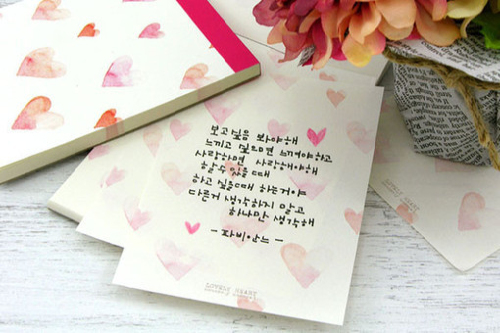 보고싶음 봐야해
느끼고 싶으면 느껴야하고
사랑하면 사랑해야해
할 수 있을 때
하고 싶을때 하는거야
다른거 생각하지 말고
하나만 생각해
- 파비안느 -
LOVELY HEART